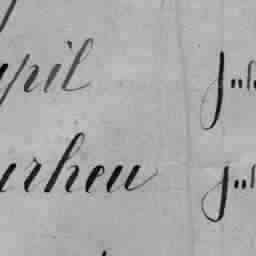 ypil Jul
urheu Jul